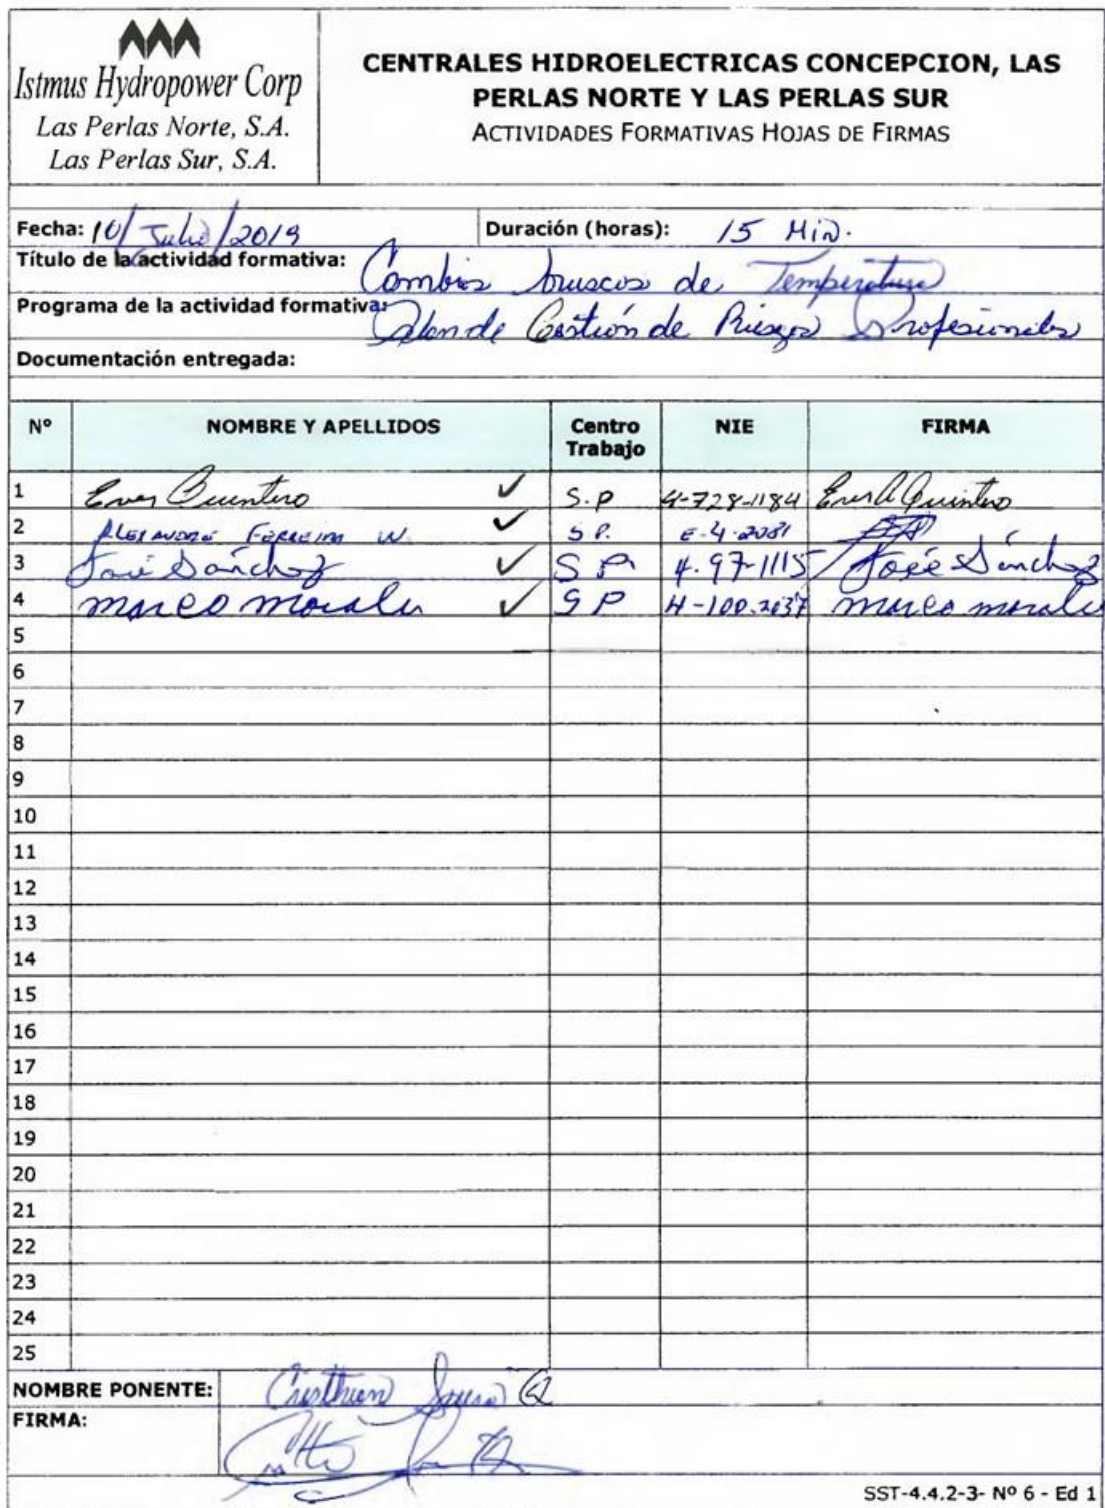 Istmus Hydropower Corp
Las Perlas Norte, S.A.
Las Perlas Sur, S.A.
CENTRALES HIDROELECTRICAS CONCEPCION, LAS
PERLAS NORTE Y LAS PERLAS SUR
ACTIVIDADES FORMATIVAS HOJAS DE FIRMAS
Fecha: 10/Julio/2019 Duración (horas): 15 Min.
Título de la actividad formativa: Cambios bruscos de Temperatura
Programa de la actividad formativa: Plan de Gestión de Riesgos Profesionales
Documentación entregada:
Nº NOMBRE Y APELLIDOS Centro Trabajo NIE FIRMA
1 Ever Quintero ✓ S.P 4-728-1184 Ever A Quintero
2 ALEXANDRE FERREIRA W. ✓ S P. E-4-2081
3 José Sánchez ✓ S P 4-97-1115 José Sánchez
4 marco morales ✓ S P 4-100-2037 marco morales
5
6
7
8
9
10
11
12
13
14
15
16
17
18
19
20
21
22
23
24
25
NOMBRE PONENTE: Cristhian Q
FIRMA:
SST-4.4.2-3- Nº 6 - Ed 1